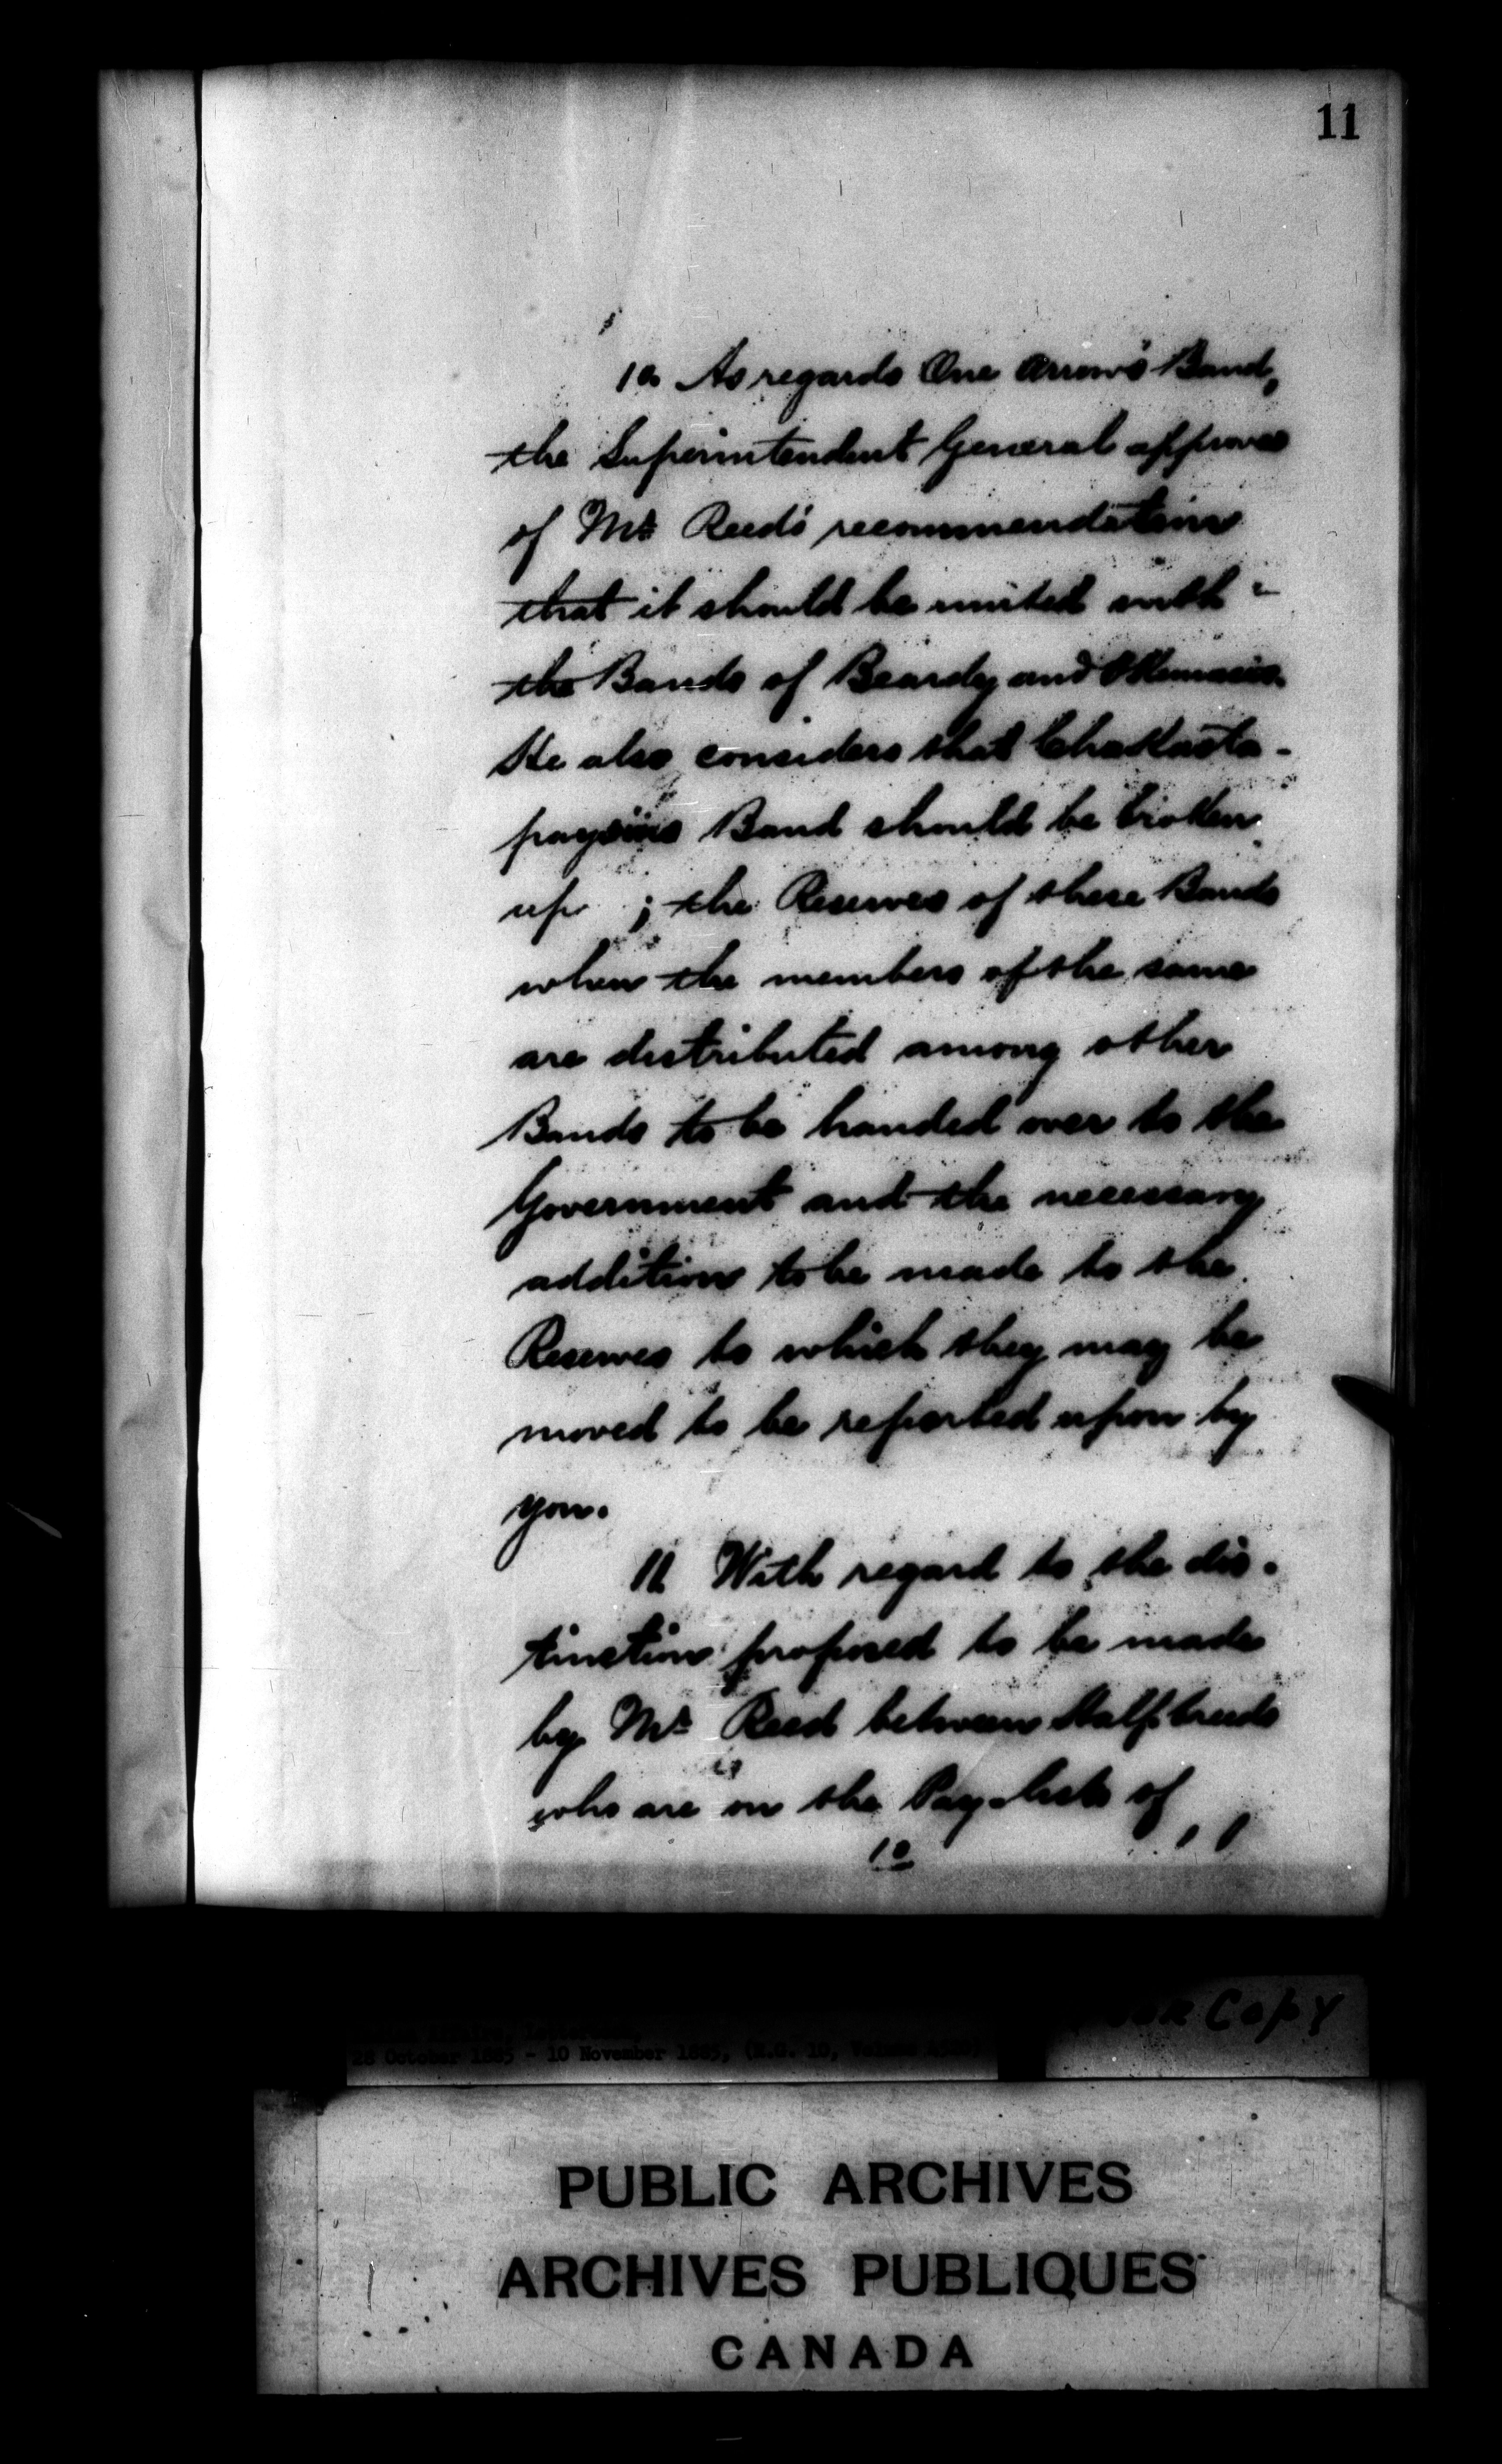 11
10 As regards One Arrow's Band,
the Superintendent General approves
of Mr Reed's recommendation
that it should be united with
the Bands of Beardy and Okemasis.
He also considers that Chakasta-
paysins Band should be broken
up ; the Reserves of these Bands
when the members of the same
are distributed among other
Bands to be handed over to the
Government and the necessary
addition to be made to the
Reserves to which they may be
moved to be reported upon by
you.
11 With regard to the dis-
tinction proposed to be made
by Mr Reed between Halfbreeds
who are on the Pay-lists of
10
Copy
28 October 1885 - 10 November 1885, (R.G. 10, Volume
PUBLIC ARCHIVES
ARCHIVES PUBLIQUES
CANADA